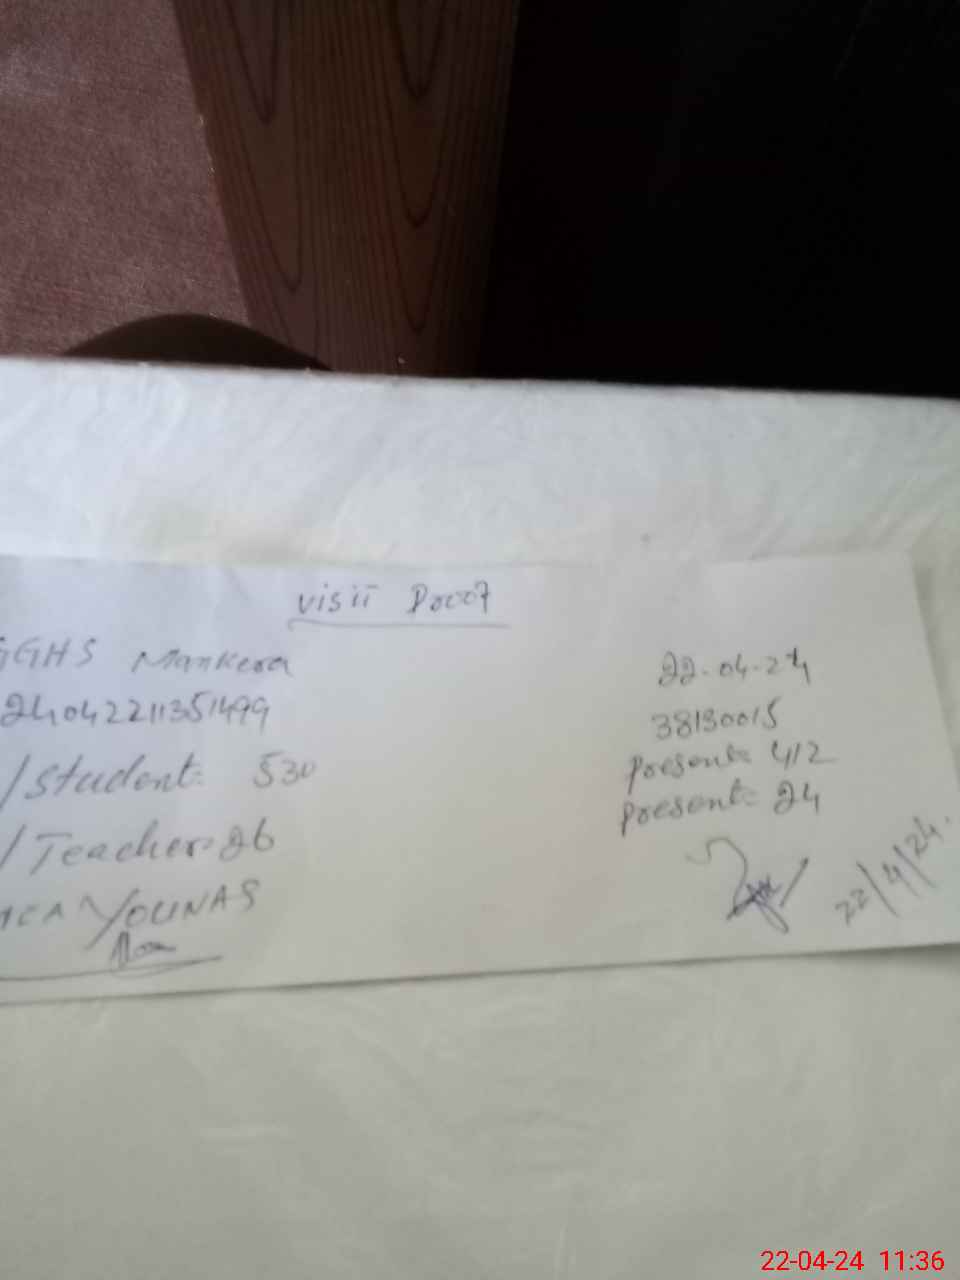 visit Proof
GGHS Mankera 22-04-24
24042211351499 38130015
/Student: 530 Present: 412
/Teacher: 26 Present: 24
MCA YOUNAS
22/4/24.
22-04-24 11:36